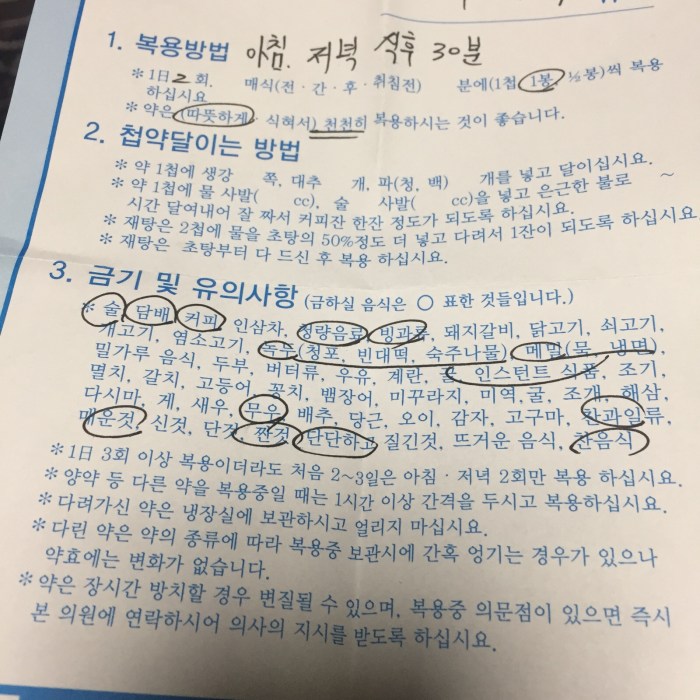 1. 복용방법 아침. 저녁 식후 30분
* 1日 2 회. 매식(전 · 간 · 후 · 취침전) 분에(1첩 1봉 ½봉)씩 복용
하십시요
* 약은 (따뜻하게 · 식혀서) 천천히 복용하시는 것이 좋습니다.
2. 첩약달이는 방법
* 약 1첩에 생강 쪽, 대추 개, 파(청, 백) 개를 넣고 달이십시요.
* 약 1첩에 물 사발( cc), 술 사발( cc)을 넣고 은근한 불로 ~
시간 달여내어 잘 짜서 커피잔 한잔 정도가 되도록 하십시요.
* 재탕은 2첩에 물을 초탕의 50%정도 더 넣고 다려서 1잔이 되도록 하십시요
* 재탕은 초탕부터 다 드신 후 복용 하십시요.
3. 금기 및 유의사항 (금하실 음식은 ○ 표한 것들입니다.)
* 술 담배 커피, 인삼차, 청량음료, 빙과류, 돼지갈비, 닭고기, 쇠고기,
개고기, 염소고기, 녹두(청포, 빈대떡, 숙주나물), 메밀(묵, 냉면),
밀가루 음식, 두부, 버터류, 우유, 계란, 인스턴트 식품, 조기,
멸치, 갈치, 고등어, 꽁치, 뱀장어, 미꾸라지, 미역, 굴, 조개, 해삼,
다시마, 게, 새우, 무우, 배추, 당근, 오이, 감자, 고구마, 찬과일류,
매운것, 신것, 단것, 짠것, 단단하고 질긴것, 뜨거운 음식, 찬음식
* 1日 3회 이상 복용이더라도 처음 2~3일은 아침 · 저녁 2회만 복용 하십시요.
* 양약 등 다른 약을 복용중일 때는 1시간 이상 간격을 두시고 복용하십시요.
* 다려가신 약은 냉장실에 보관하시고 얼리지 마십시요.
* 다린 약은 약의 종류에 따라 복용중 보관시에 간혹 엉기는 경우가 있으나
약효에는 변화가 없습니다.
* 약은 장시간 방치할 경우 변질될 수 있으며, 복용중 의문점이 있으면 즉시
본 의원에 연락하시어 의사의 지시를 받도록 하십시요.